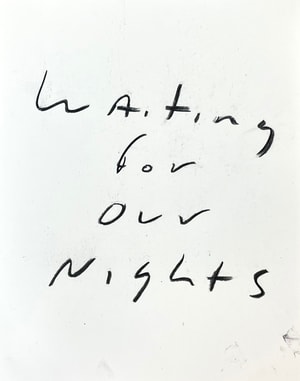 Waiting
for
our
Nights